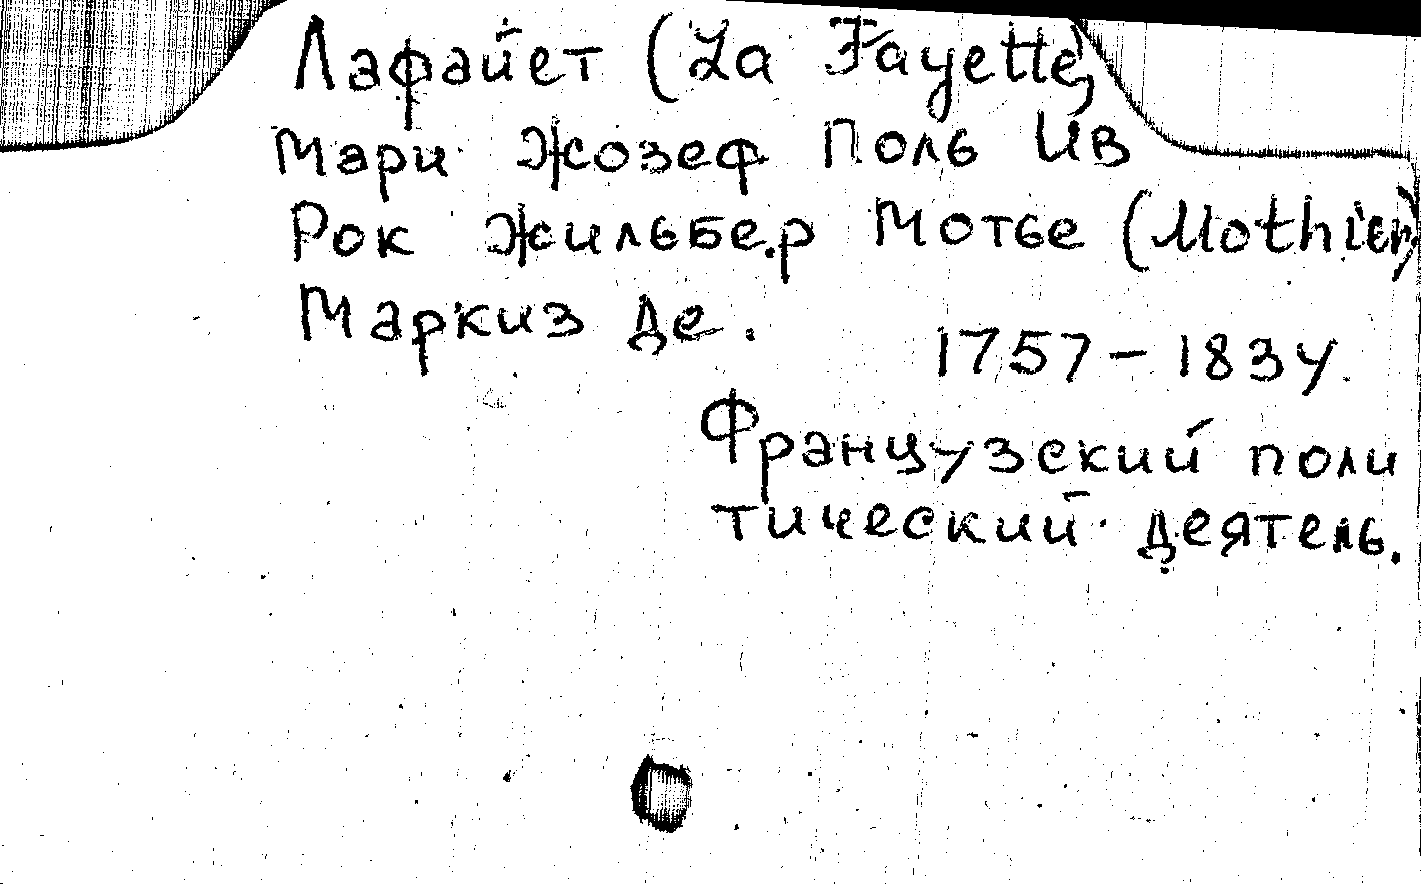 Лафайет (La Fayette),
Мари Жозеф Поль Ив
Рок Жильбер Мотье (Mothier),
Маркиз де.
1757-1834.
Французский поли
тический деятель.